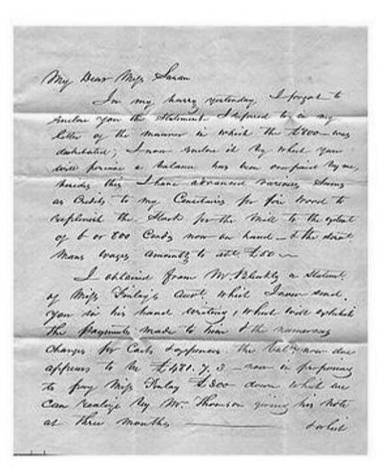 My Dear Miss Susan
In my hurry yesterday, I forgot to
enclose you the Statement I referred to in my
letter of the manner in which the £800 was
distributed; I now enclose it by which you
will perceive a balance has been overpaid by me,
besides this I have advanced various Sums
as Credits to my for fire wood to
replenish the Stock for the Mill to the extent
of 6 or 800 Cords now on hand — & the
Mans wages amounts to £50 —
I obtained from Mr a Statemt
of Miss Finlay's Acct. which I now send
you in his hand writing, which will exhibit
the payments made to him & the numerous
charges for Costs & expenses. the Bale now due
appears to be £481. 7. 3 — now in proposing
to pay Miss Finlay £300 down which we
can realize by Mr. Thomson giving his Note
at three months —